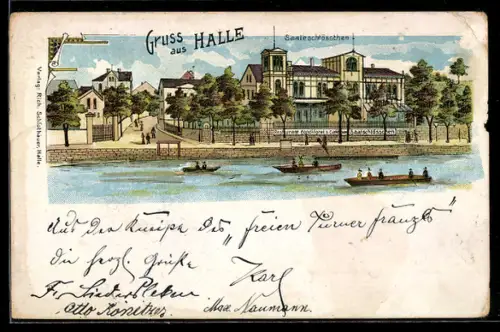 Gruss
aus HALLE
Saaleschlösschen
Verlag: Rich. Schlathauer, Halle.
Saalschlösschen
Aus der Kneipe des „freien Turner
die herzl. Grüße
Karl
Fr.
Otto Max Naumann.